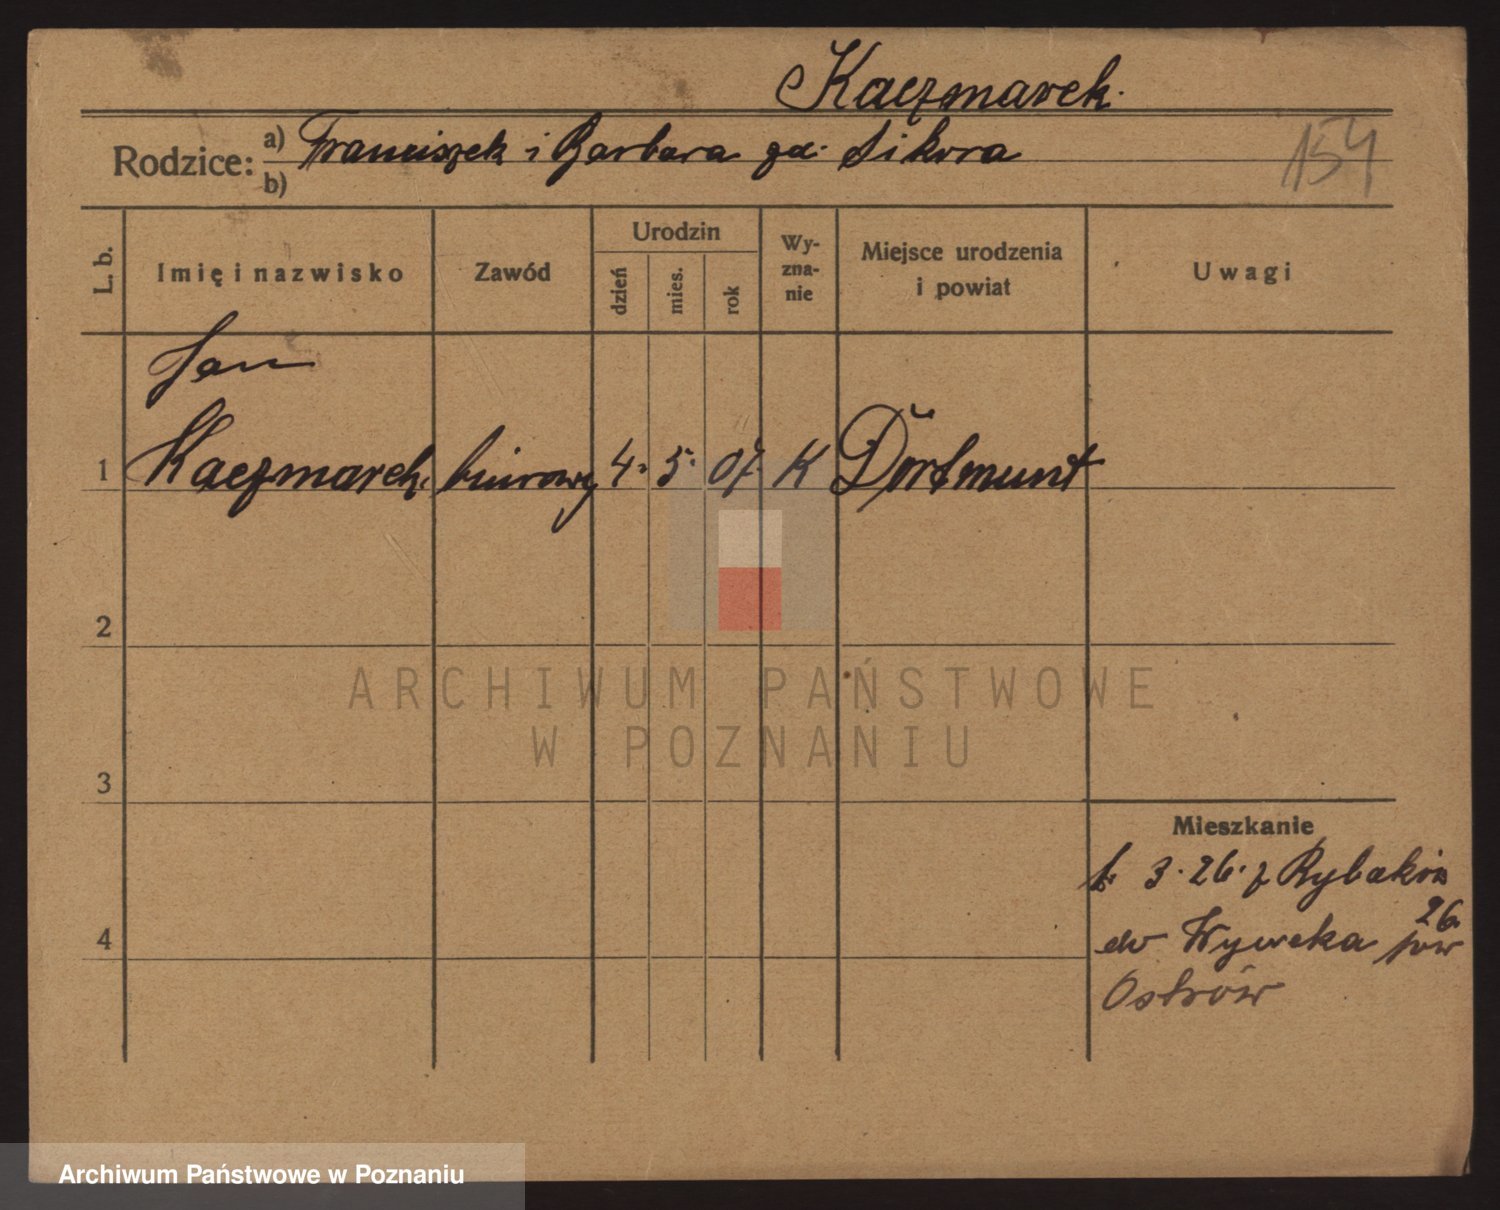 Kaczmarek.
Rodzice: a) Franciszek i Barbara gd. Sikora
b)
154
L. b.
Imię i nazwisko
Zawód
Urodzin
dzień
mies.
rok
Wy-
zna-
nie
Miejsce urodzenia
i powiat
Uwagi
Jan
1 Kaczmarek. biurowy 4. 5. 07. K Dortmunt
2
3
4
Mieszkanie
3. 26. z Rybakin
26.
do Wysocka pow
Ostrów
ARCHIWUM PAŃSTWOWE
W POZNANIU
Archiwum Państwowe w Poznaniu